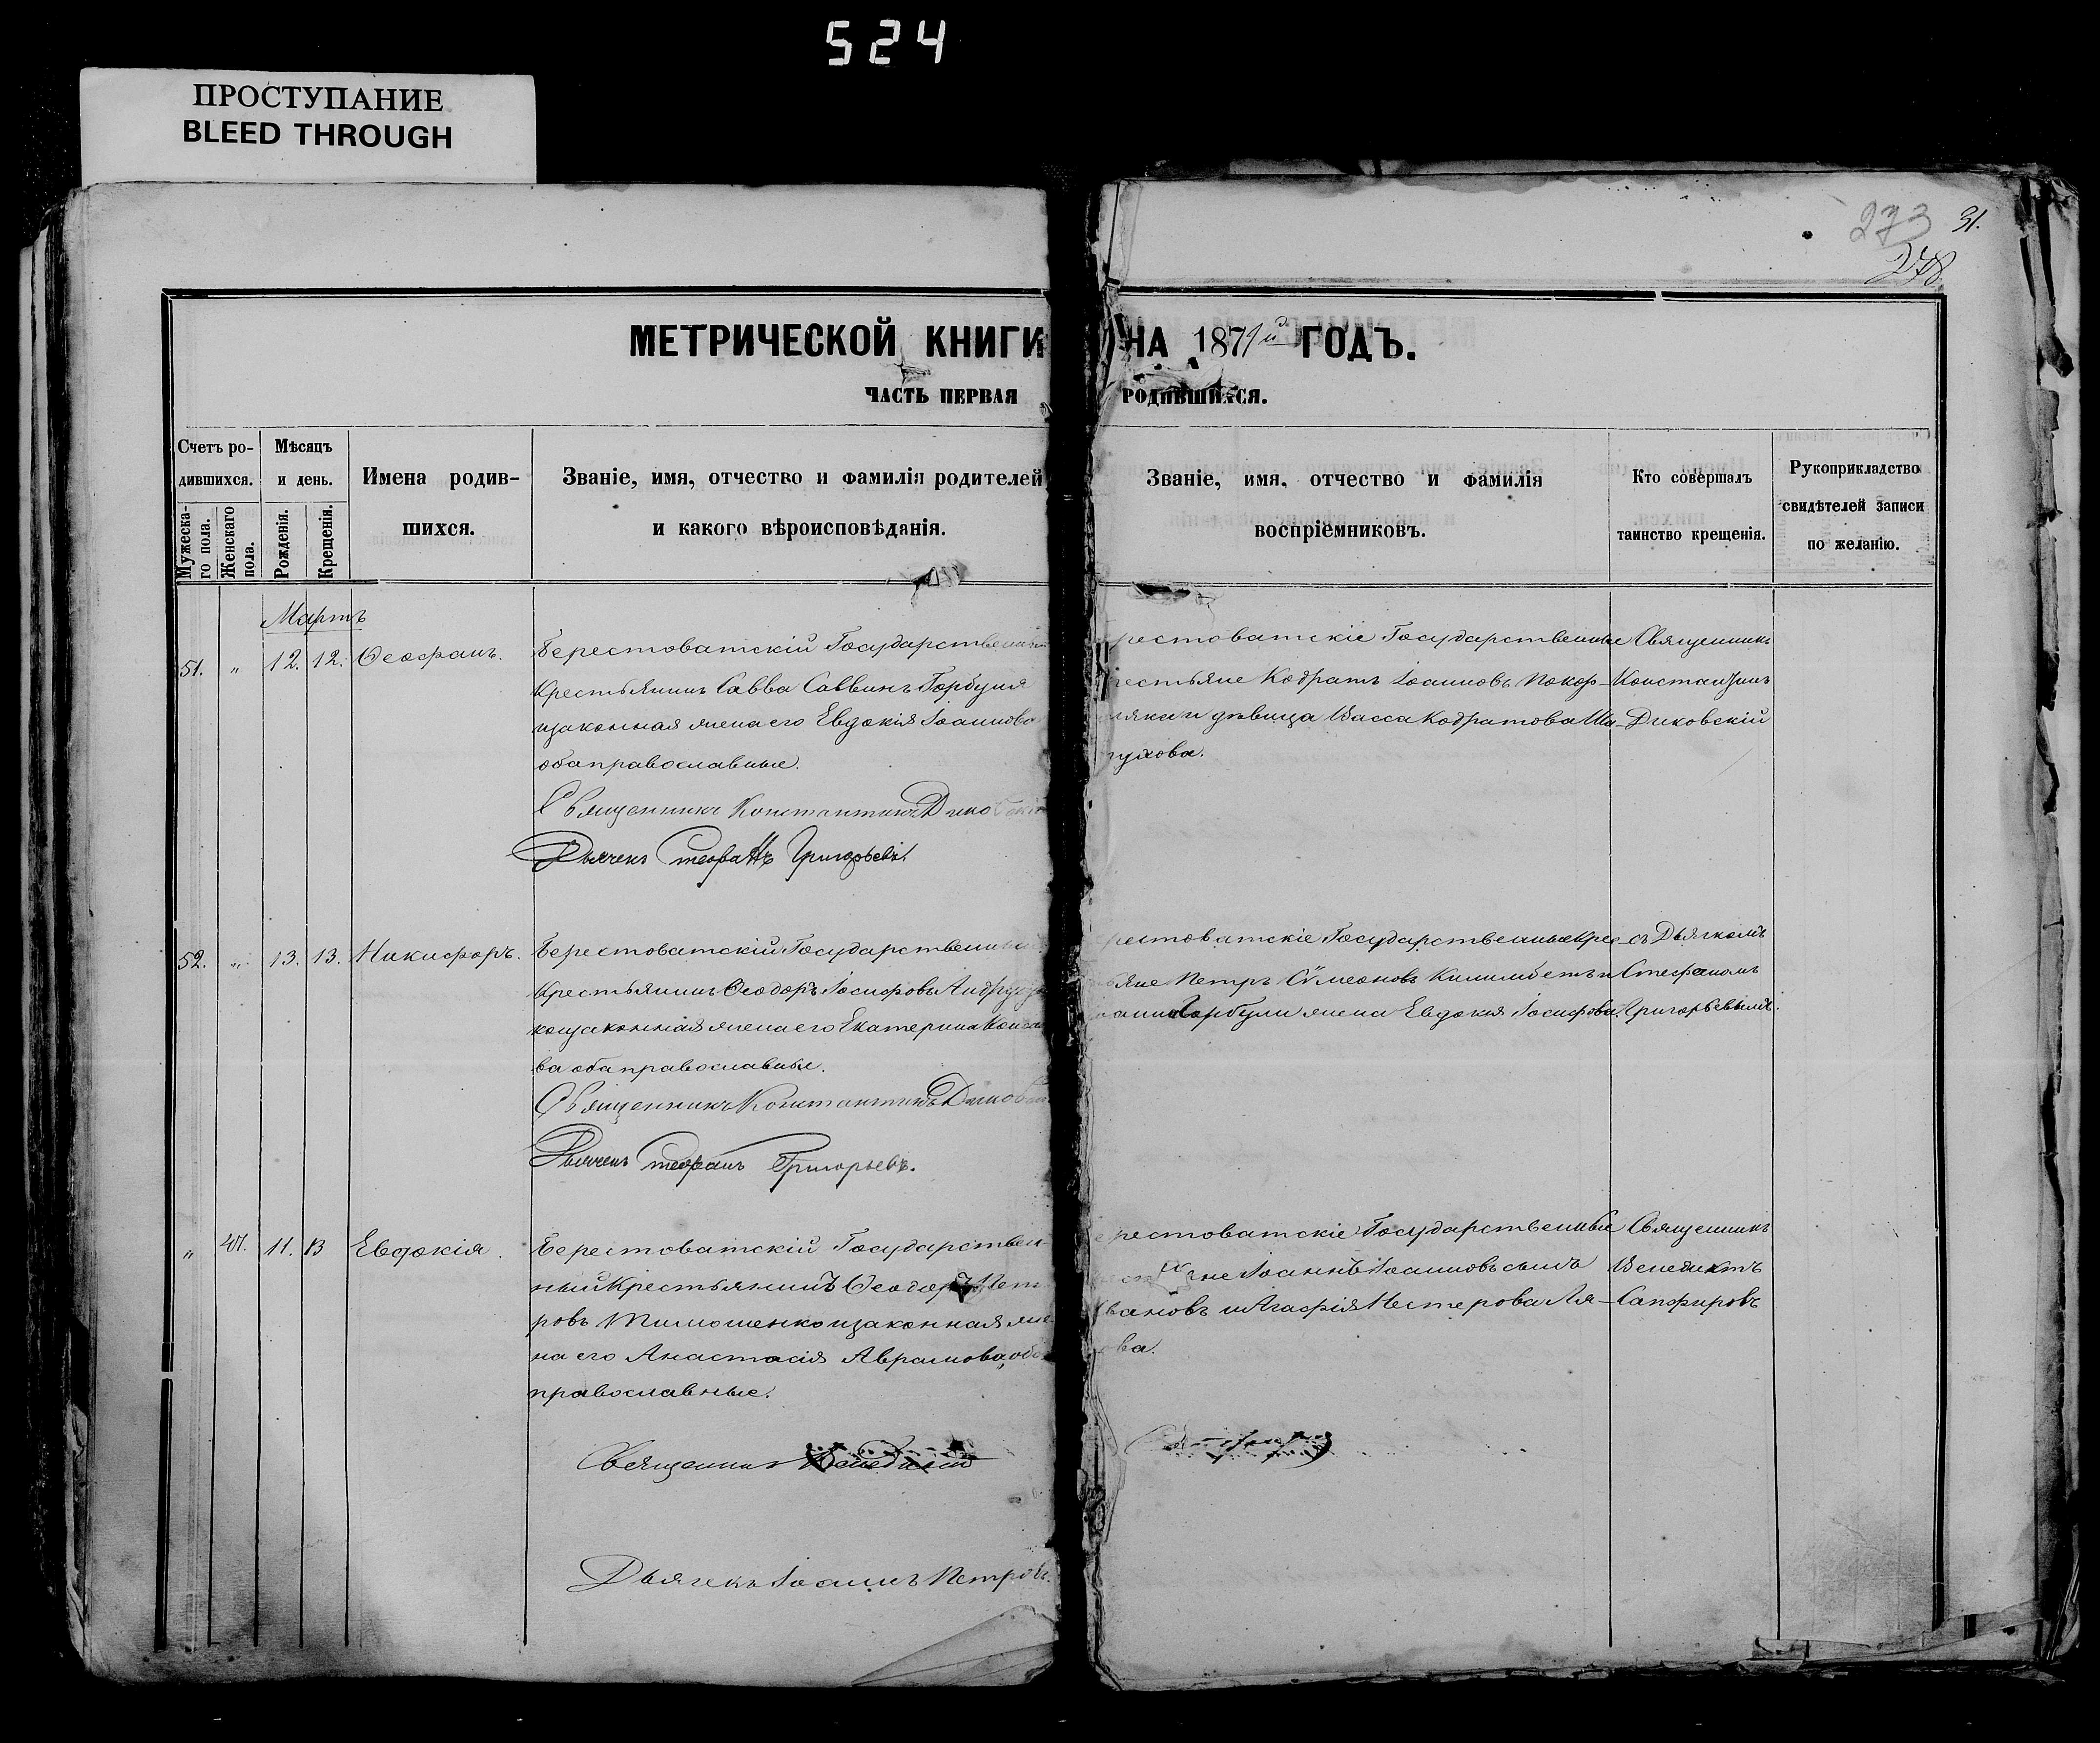 524
ПРОСТУПАНИЕ
BLEED THROUGH
273 31.
278.
МЕТРИЧЕСКОЙ КНИГИ НА 1871й ГОДЪ.
ЧАСТЬ ПЕРВАЯ РОДИВШИХСЯ.
Счетъ ро-
дившихся.
Мужеска-
го пола.
Женскаго
пола.
Мѣсяцъ
и день.
Рожденія.
Крещенія.
Имена родив-
шихся.
Званіе, имя, отчество и фамилія родителей
и какого вѣроисповѣданія.
Званіе, имя, отчество и фамилія
воспріемниковъ.
Кто совершалъ
таинство крещенія.
Рукоприкладство
свидѣтелей записи
по желанію.
Мартъ
51. " 12. 12. Ѳеофанъ.
Берестоватскій Государственный
Крестьянинъ Савва Саввинъ Горбуля
изаконная жена его Евдокія Іоаннова
оба православные.
Священникъ Константинъ Диковскій
Дьячекъ Стефанъ Григорьевъ.
рестоватскіе Государственные
рестьяне Кодратъ Іоанновъ
дѣвица Васса Кодратова Ша-
пухова.
Священникъ
Константинъ
Диковскій
52. " 13. 13. Никифоръ.
Берестоватскій Государственный
Крестьянинъ Ѳеодоръ Іосифовъ
ко изаконная жена его Екатерина
ва оба православные.
Священникъ Константинъ Диковскій
Дьячекъ Стефанъ Григорьевъ.
рестоватскіе Государственные Крес-
ьяне Петръ Сѵмеоновъ Килимбетъ и
Горбули жена Евдокія Іосифова.
съ Дьячкомъ
Стефаномъ
Григорьевымъ.
" 47. 11. 13 Евдокія.
Берестоватскій Государствен
ный Крестьянинъ Ѳеодоръ Пет
ровъ Тимошенко изаконная же
на его Анастасія Аврамова, оба
православные.
Священникъ Венедиктъ
Дьячекъ Іоаннъ Петровъ.
ерестоватскіе Государственные
не Іоаннъ Іоанновъ сынъ
Ивановъ и Агафія Нестерова Ля-
ова.
Священникъ
Венедиктъ
Сапфировъ